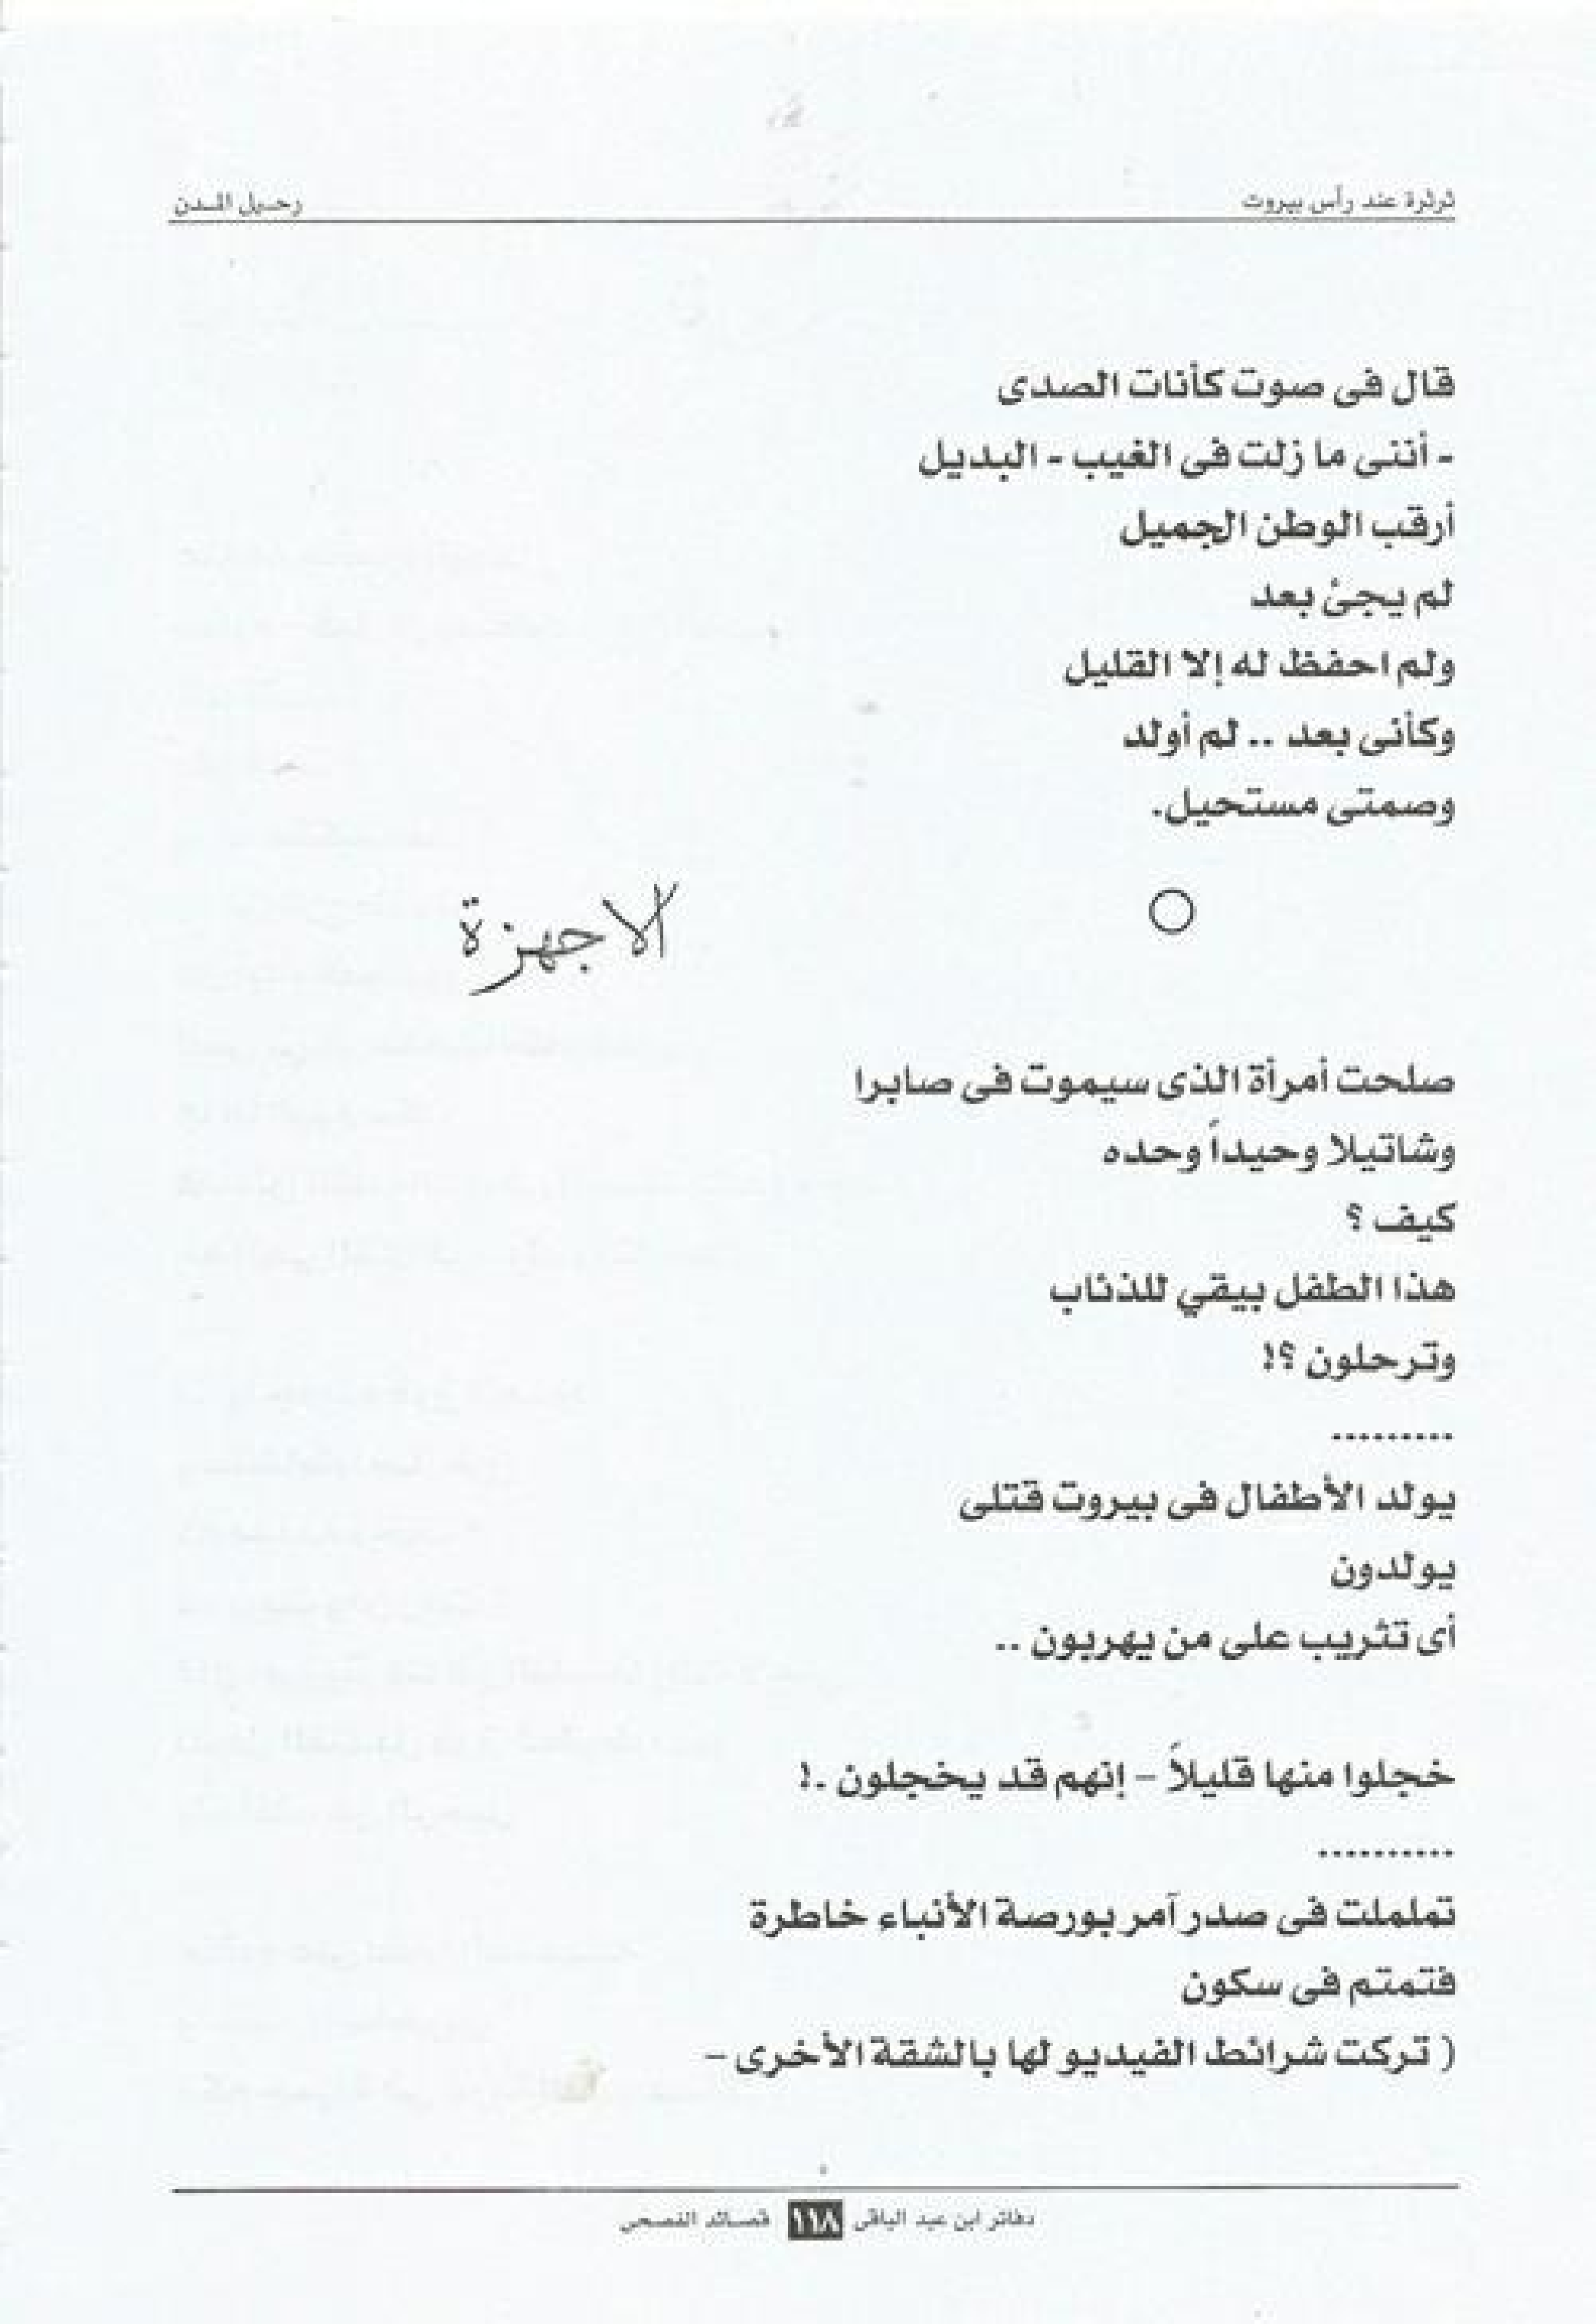 ثرثرة عند رأس بيروت
رحيل المدن
قال فى صوت كأنات الصدى
- أننى ما زلت فى الغيب - البديل
أرقب الوطن الجميل
لم يجئ بعد
ولم احفظ له إلا القليل
وكأنى بعد .. لم أولد
وصمتى مستحيل.
الاجهزة
صلحت أمرأة الذى سيموت فى صابرا
وشاتيلا وحيداً وحده
كيف ؟
هذا الطفل بيقي للذئاب
وترحلون ؟!
.........
يولد الأطفال فى بيروت قتلى
يولدون
أى تثريب على من يهربون ..
خجلوا منها قليلاً – إنهم قد يخجلون .!
..........
تململت فى صدر آمر بورصة الأنباء خاطرة
فتمتم فى سكون
( تركت شرائط الفيديو لها بالشقة الأخرى –
دفاتر ابن عبد الباقى ١١٨ قصائد الفصحى